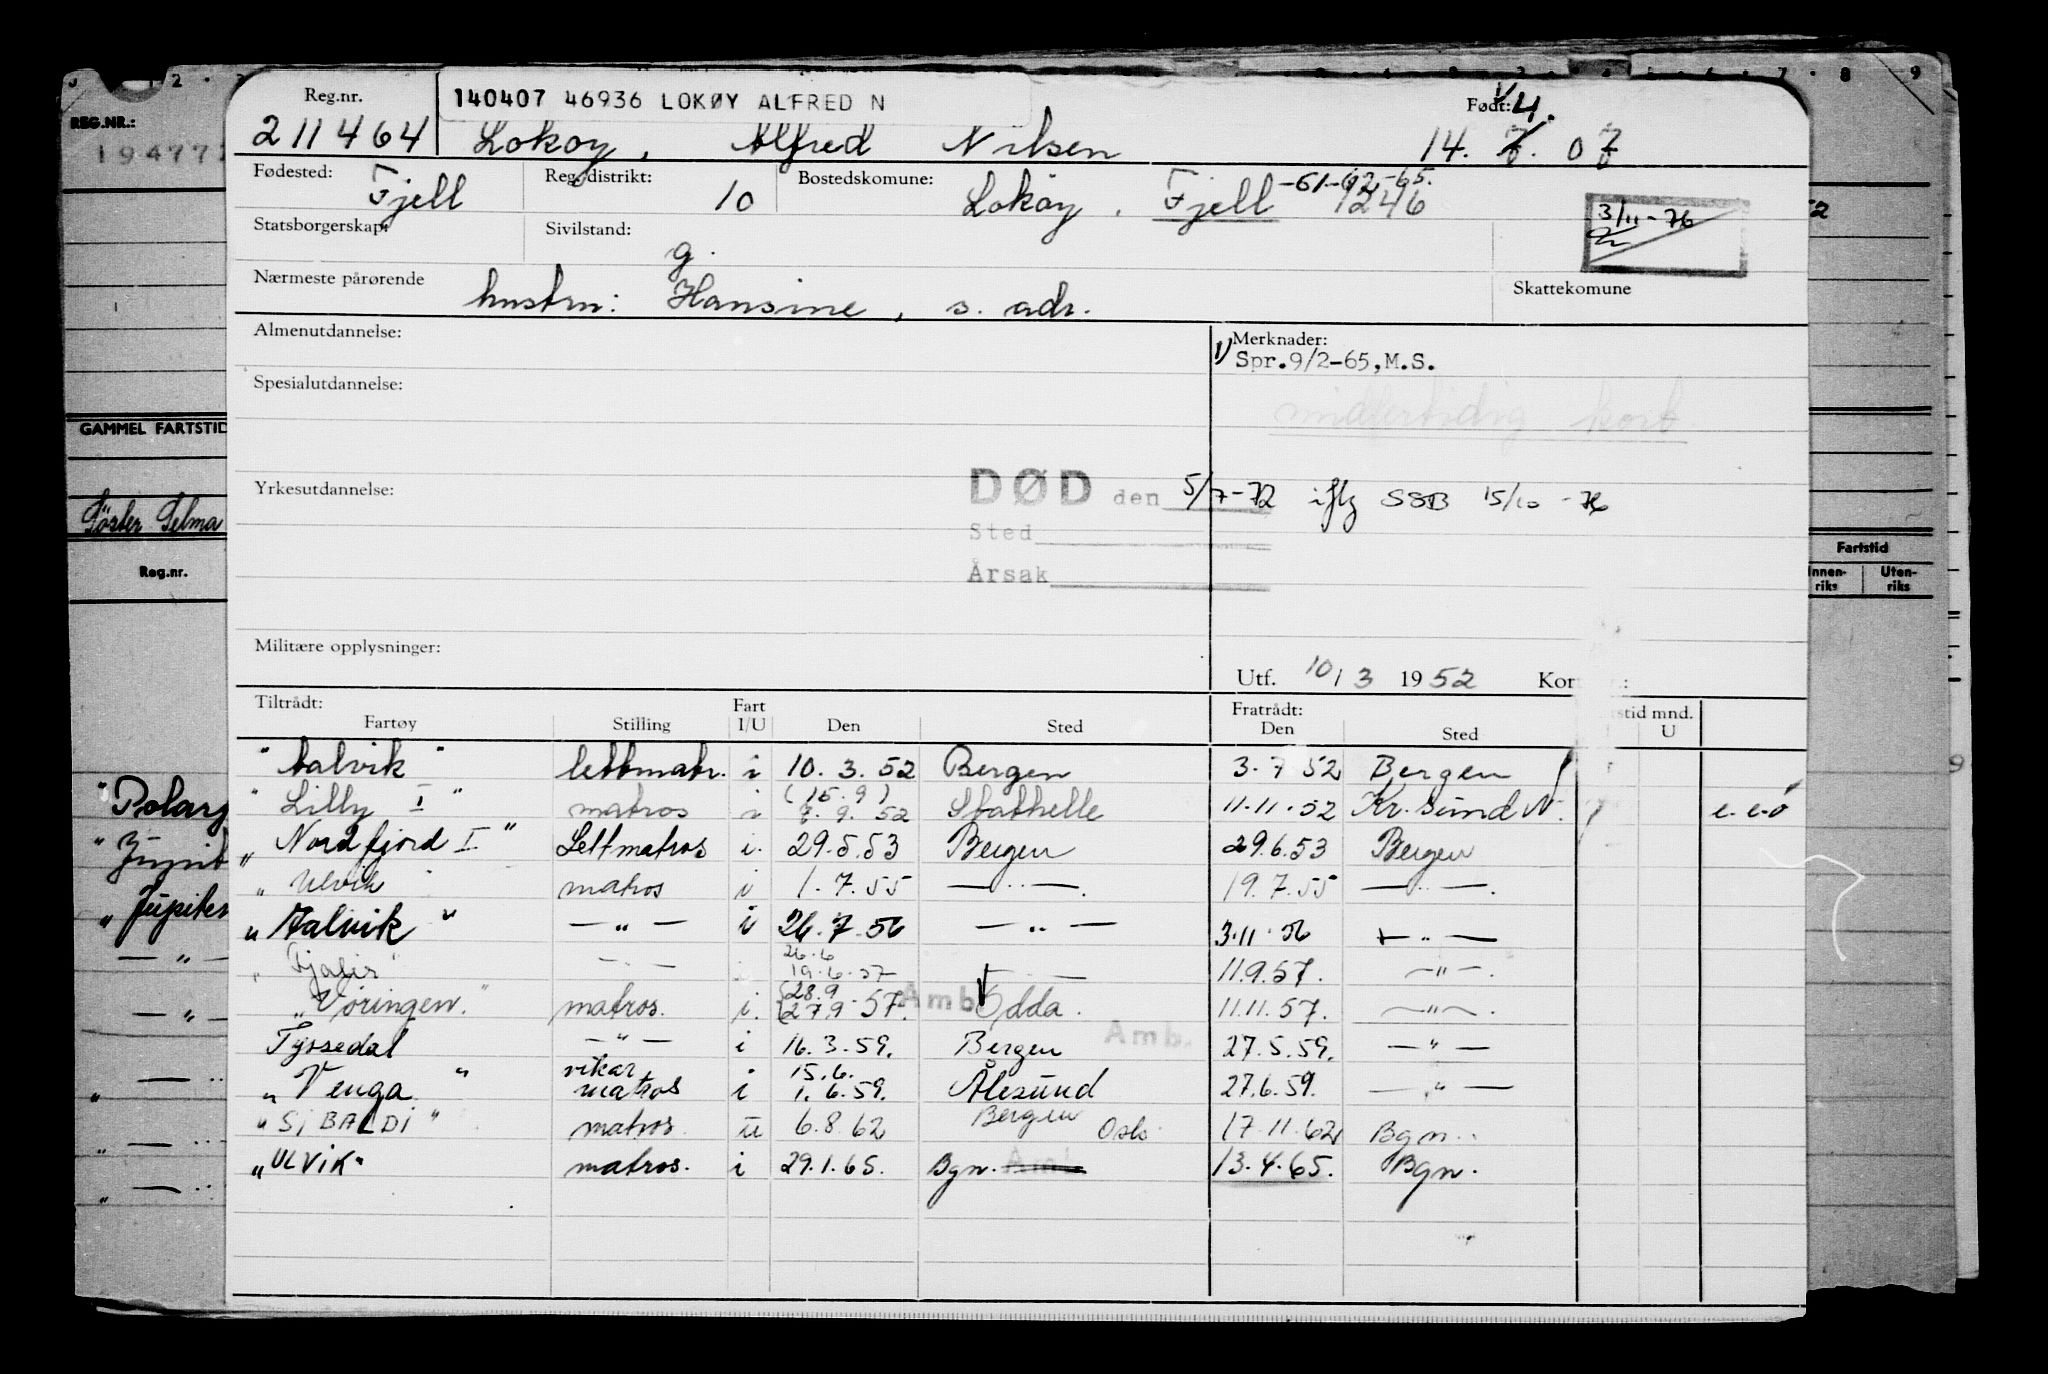 REG.NR.:
194771
GAMMEL FARTSTID
Söster Selma
Reg.nr.
Reg.nr.
140407 46936 LOKØY ALFRED N
Født: 1/ 4.
211464 Lokøy, Alfred Nilsen 14. 7. 07
Fødested: Fjell
Reg. distrikt: 10
Bostedskomune: Lokøy, Fjell -61-62-65. 1246
3/11-76
Statsborgerskap:
Sivilstand: g.
Nærmeste pårørende hustru: Hansine, s. adr.
Skattekomune
Almenutdannelse:
Merknader:
1/ Spr.9/2-65,M.S.
Spesialutdannelse:
midlertidig kort
Yrkesutdannelse:
DØD den 5/7-72 iflg SSB 15/10-76
Sted
Årsak
Militære opplysninger:
Utf. 10/3 1952
Fartstid
Innen-riks
Uten-riks
Tiltrådt:
Fartøy Stilling Fart I/U Den Sted
Fratrådt:
Den Sted
tid mnd.
U
"Aalvik" lettmatr. i 10. 3. 52 Bergen 3. 7 52 Bergen
"Lilly I" matros i (15. 9) 7. 9. 52 Stathelle 11.11.52 Kr.sund N. e.e.ö
"Nordfjord I" Lettmatros i. 29.5.53 Bergen 29.6.53 Bergen
"Ulvik" matros i 1. 7. 55 — " —. 19. 7. 55 — " —.
"Aalvik" — " — i 26.7.56 — " — 3.11.56 — " —
"Fjalir" — " — 26.6 19.6.57 — 11.9.57. — " —.
"Vøringen" matros. i. 28.9 27.9 57. Amb. Odda. 11.11.57. — " —.
Tyssedal — " — i 16.3.59. Bergen Amb. 27.5.59. — " —
"Venga" vikar matros i 15.6. 1.6.59. Ålesund 27.6.59. — " —
"SiBALDi" matros u 6.8.62 Bergen Oslo 17.11.62 Bgn.
"ULViK" matros. i 29.1.65. Bgn. 13.4.65. Bgn.
"Polarg
"Jupit
"Jupiter
— " —
— " —
" — "
" — "
" — "